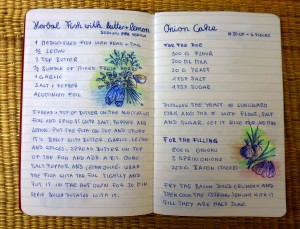 Herbal Fish with butter + lemon
4 medium sized fish with head + tail
½ lemon
2 tsp butter
½ bundle of mixed fresh herbs
4 garlic
salt + pepper
aluminium foil
spread 1 tsp of butter on the
foil and sprinkle salt, pepper and
lemon. Put the fish on top and stuff
its belly with butter, garlic, lemon
and spices. Spread butter on top
of the fish and add a bit
salt, pepper and lemon. Wrap
the fish with the foil slightly and
put it in the hot oven for 20 min
serve boiled potatoes with it.
Onion Cake
for the doe
300 g flour
200 ml milk
20 g yeast
1 tsp salt
1 tsp sugar
dissolve the yeast in lukewarm
milk and mix it with flour, salt
and sugar. Let it rise for 20 min
for the filling
800 g onions
3 springonions
250 g bacon
fry the bacon until crunchy and
then cook the onions with it
till they are half done